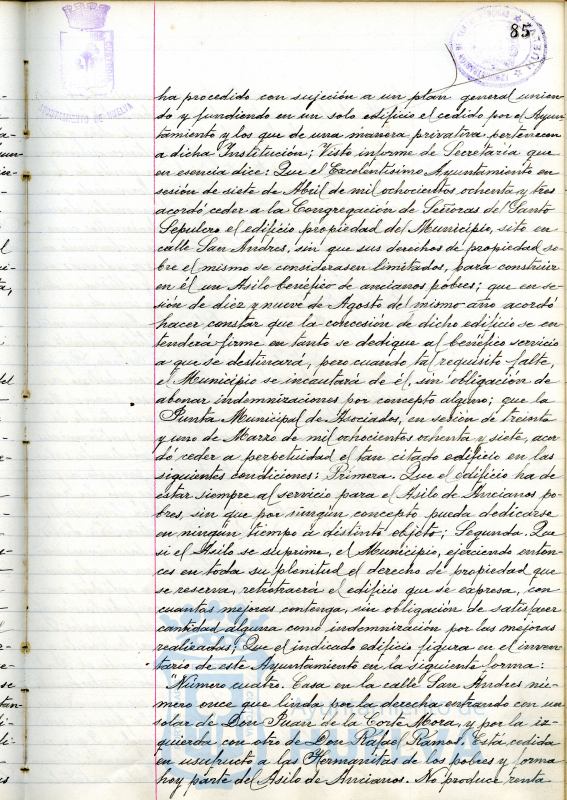 85
AYUNTAMIENTO DE HUELVA
ha procedido con sujeción a un plan general unien-
do y fundiendo en un solo edificio el cedido por el Ayun-
tamiento y los que de una manera privativa pertenecen
a dicha Institución; Visto informe de Secretaría que
en esencia dice: Que el Excelentísimo Ayuntamiento en
sesión de siete de Abril de mil ochocientos ochenta y tres
acordó ceder a la Congregación de Señoras del Santo
Sepulcro el edificio propiedad del Municipio, sito en
calle San Andres, sin que sus derechos de propiedad so-
bre el mismo se considerasen limitados, para construir
en él un Asilo benéfico de ancianos pobres; que en se-
sión de diez y nueve de Agosto del mismo año acordó
hacer constar que la concesión de dicho edificio se en-
tenderá firme en tanto se dedique al benéfico servicio
a que se destinará, pero cuando tal requisito falte,
el Municipio se incautará de él, sin obligación de
abonar indemnizaciones por concepto alguno; que la
Junta Municipal de Asociados, en sesión de treinta
y uno de Marzo de mil ochocientos ochenta y siete, acor-
dó ceder a perpetuidad el tan citado edificio en las
siguientes condiciones: Primera. Que el edificio ha de
estar siempre al servicio para el Asilo de Ancianos po-
bres, sin que por ningún concepto pueda dedicarse
en ningún tiempo a distinto objeto; Segunda. Que
si el Asilo se suprime, el Municipio, ejerciendo enton-
ces en toda su plenitud el derecho de propiedad que
se reserva, retrotraerá el edificio que se expresa, con
cuantas mejoras contenga, sin obligación de satisfacer
cantidad alguna como indemnización por las mejoras
realizadas; Que el indicado edificio figura en el inven-
tario de este Ayuntamiento en la siguiente forma:
"Número cuatro. Casa en la calle San Andres nú-
mero once que linda por la derecha entrando con un
solar de Don Juan de la Corte Mora, y por la iz-
quierda con otro de Don Rafael Ramos. Esta cedida
en usufructo a las Hermanitas de los pobres y forma
hoy parte del Asilo de Ancianos. No produce renta